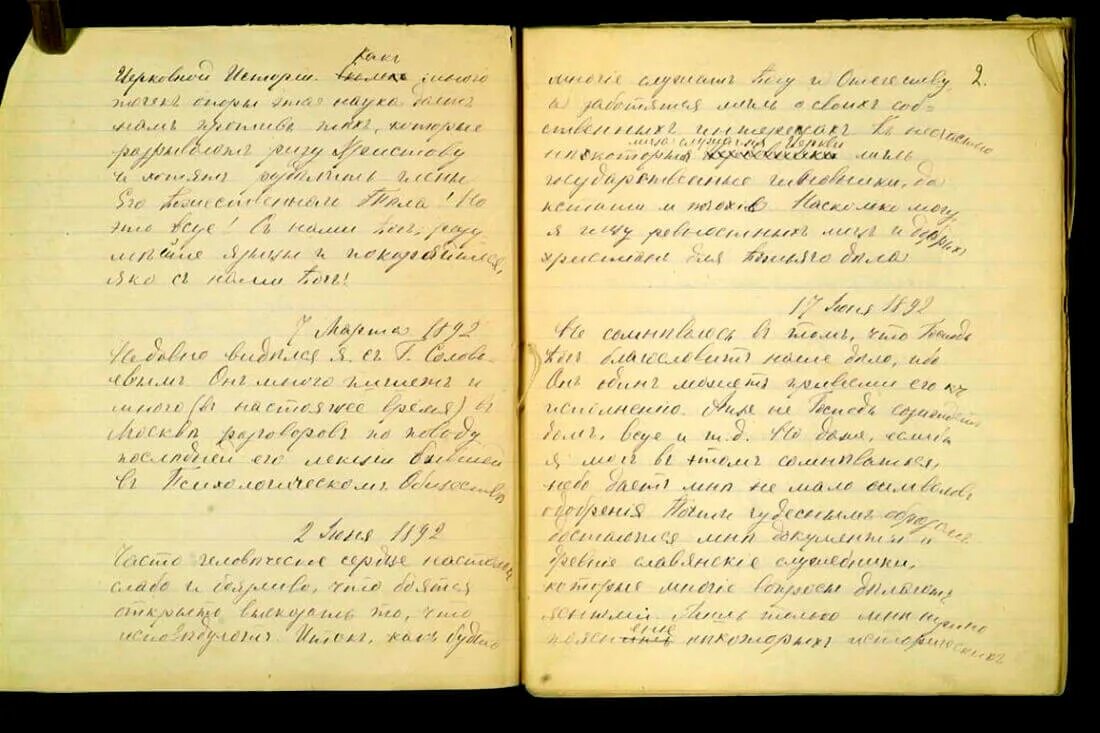 какъ
Церковной Исторіи. много
точекъ опоры этае наука даетъ
намъ противъ тѣхъ, которые
разрываютъ ризу Христову
и хотятъ раздѣлить члены
Его Божественнаго Тѣла! Но
это всуе! Съ нами Богъ, разу
мѣйте языцы и покоряйтеся,
яко съ нами Богъ!
7 Марта 1892
Недавно видился я съ Г. Соловь-
евымъ Онъ много пишетъ и
много (въ настоящее время) въ
Москвѣ разговоровъ по поводу
послѣдней его лекціи бывшей
въ Психологическомъ Обществѣ
2 Іюня 1892
Часто человѣческое сердце настолько
слабо и боязливо, что боятся
открыто высказать то, что
исповѣдуютъ. Иные, какъ будто
2.
многіе служатъ Богу и Отечеству
а заботятся лишь о своихъ соб-
ственныхъ интересахъ Къ несчастію
служатъ Церкви
нѣкоторые лишь
государственные чиновники, да
кстати и плохіе Насколько могу
я ищу ревностныхъ лицъ и добрыхъ
христіанъ для Божьяго дѣла
17 Іюня 1892
Не сомнѣваюсь въ томъ, что Господь
Богъ благословитъ наше дѣло, ибо
Онъ одинъ можетъ привести его къ
исполненію. Аще не Господь созиждетъ
домъ, всуе и т.д. Но даже, еслибъ
я могъ въ этомъ сомнѣваться,
небо даетъ мнѣ не мало символовъ
одобренія Почти чудеснымъ образомъ
достаются мнѣ документы и
древніе славянскіе служебники,
которые многіе вопросы дѣлаютъ
ясными. Лишь только мнѣ нужно
поясненіе нѣкоторыхъ историческихъ